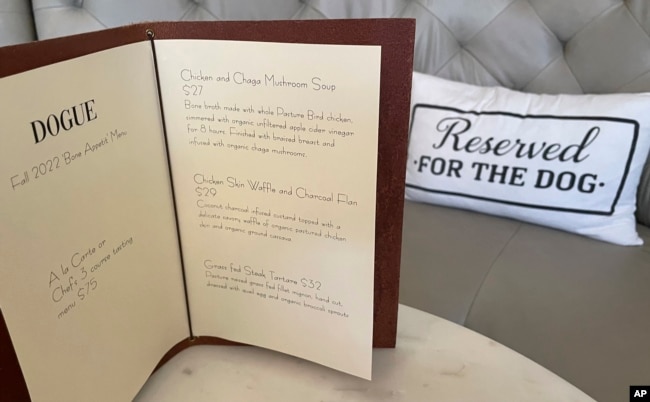 DOGUE
Fall 2022 Bone Appetit Menu
A la Carte or
Chef's 3 course tasting
menu $75
Chicken and Chaga Mushroom Soup
$27
Bone broth made with whole Pasture Bird chicken,
simmered with organic unfiltered apple cider vinegar
for 8 hours. Finished with braised breast and
infused with organic chaga mushrooms.
Chicken Skin Waffle and Charcoal Flan
$29
Coconut charcoal infused custard topped with a
delicate savory waffle of organic pastured chicken
skin and organic ground cassava.
Grass fed Steak Tartare $32
Pasture raised grass fed fillet mignon, hand cut,
dressed with quail egg and organic broccoli sprouts
Reserved
·FOR THE DOG·
AP